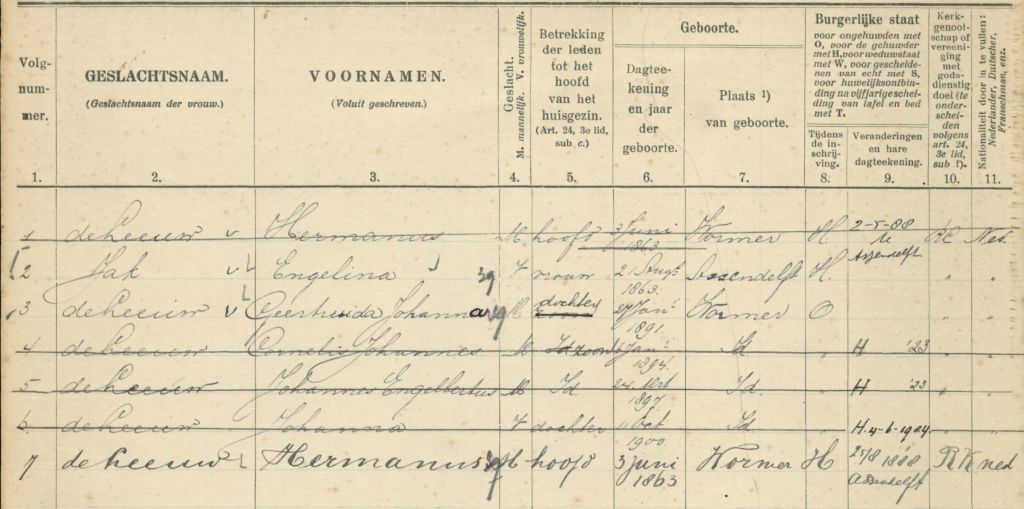 Volg-
num-
mer.
GESLACHTSNAAM.
(Geslachtsnaam der vrouw.)
VOORNAMEN.
(Voluit geschreven.)
Geslacht.
M. mannelijk. V. vrouwelijk.
Betrekking
der leden
tot het
hoofd
van het
huisgezin.
(Art. 24, 3e lid,
sub c.)
Geboorte.
Dagtee-
kening
en jaar
der
geboorte.
Plaats ¹)
van geboorte.
Burgerlijke staat
voor ongehuwden met
O, voor de gehuwden
met H, voor weduwstaat
met W, voor gescheide-
nen van echt met S,
voor huwelijksontbin-
ding na vijfjarige schei-
ding van tafel en bed
met T.
Tijdens
de in-
schrij-
ving.
Veranderingen
en hare
dagteekening.
Kerk-
genoot-
schap of
vereeni-
ging
met
gods-
dienstig
doel (te
onder-
schei-
den
volgens
art. 24,
3e lid,
sub f).
Nationaliteit door in te vullen:
Nederlander, Duitscher,
Franschman, enz.
1. 2. 3. 4. 5. 6. 7. 8. 9. 10. 11.
1 de Leeuw v Hermanus M hoofd 3 Juni 1863 Wormer H. 2-5-88 te Assendelft RK Ned.
2 Jak v Engelina V vrouw 2 Aug. 1863. Assendelft H. " "
3 de Leeuw v Geertruida Johanna M dochter 27 Jan. 1891. Wormer O " "
4 de Leeuw Cornelis Johannes M Id zoon Jan. 1894. Id " H '23 " "
5 de Leeuw Johannes Engelbertus M Id. 24 Mrt 1897 Id. " H '23 " "
6. de Leeuw Johanna V dochter Oct 1900. Id " H. 4-6-1924 " "
7 de Leeuw Hermanus M hoofd 3 Juni 1863 Wormer H 25/8 1888 Assendelft RK ned